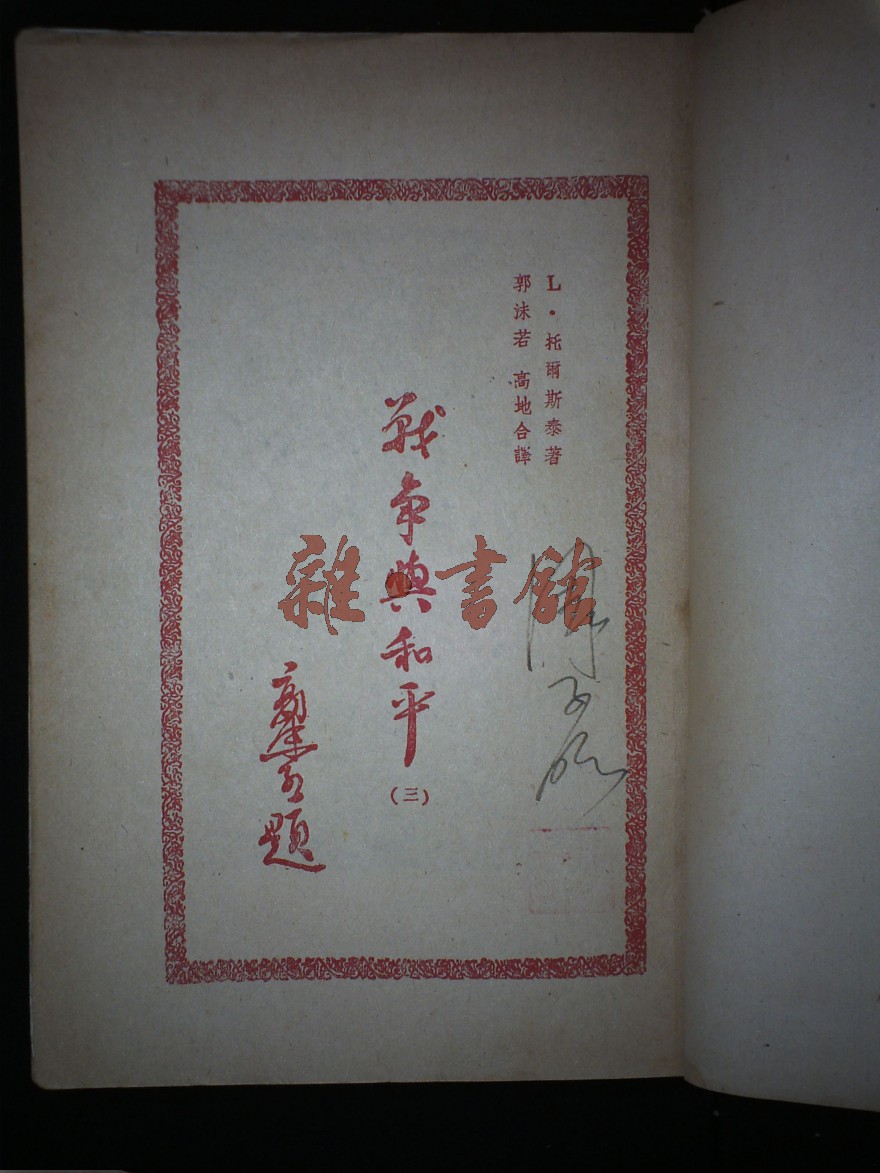 L·托爾斯泰著
郭沫若 高地合譯
戰争與和平
(三)
題
雜書館